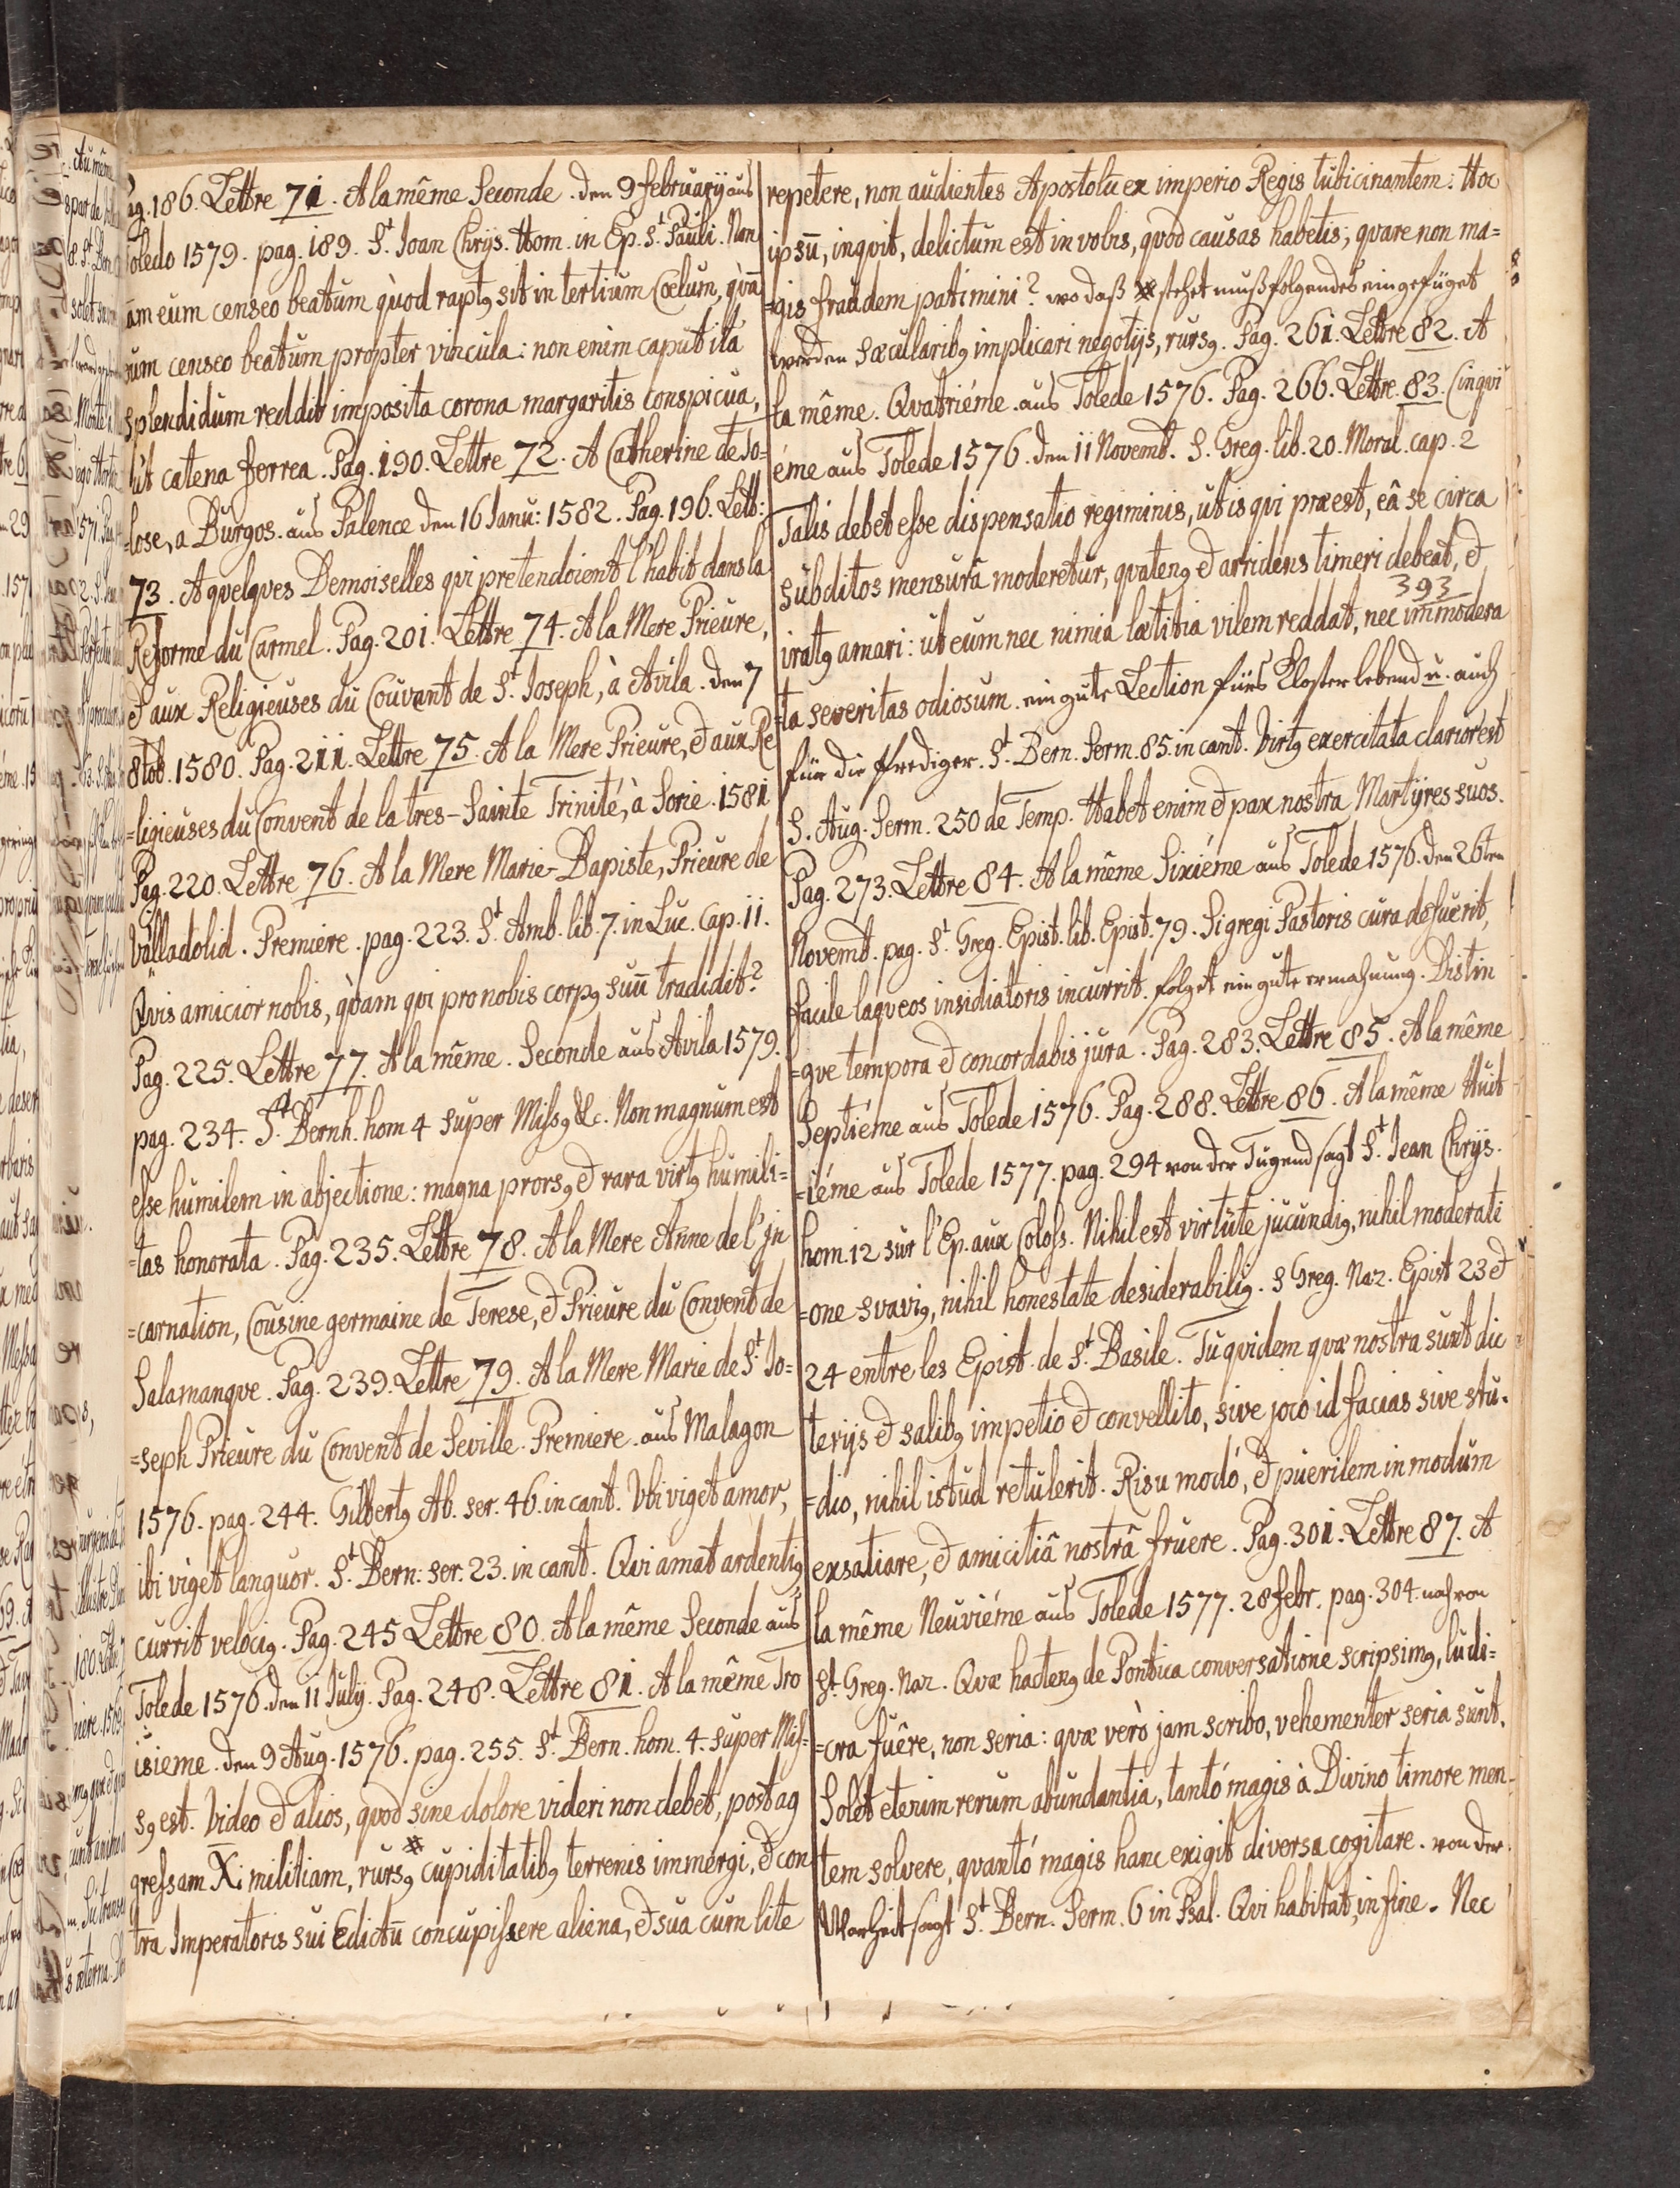 ag. 186. Lettre 71. A la même Seconde. den 9 februarÿ aus
Toledo 1579. pag. 189. St. Joan Chrÿs. Hom. in Ep. St. Pauli. Non
àm eum censeo beatum qùod raptꝰ sit in tertium Cœlum, qùã
eum censeo beatum propter vincula: non enim caput ita
splendidum reddit imposita corona margaritis conspicua,
ut catena ferrea. Pag. 190. Lettre 72. A Catherine de To=
=lose, a Burgos. aus Palence den 16 Janu: 1582. Pag. 196. Lett:
73. A quelques Demoiselles qui pretendoient l'habit dans la
Reforme du Carmel. Pag. 201. Lettre 74. A la Mere Prieure,
& aux Religieuses du Couvant de St. Joseph, à Avila. den 7
8tob. 1580. Pag. 211. Lettre 75. A la Mere Prieure, & aux Re
=ligieuses du Convent de la tres-Sainte Trinité, à Sorie. 1581
Pag. 220. Lettre 76. A la Mere Marie-Bapiste, Prieure de
Valladolid. Premiere. pag. 223. St. Amb. lib. 7. in Luc. Cap. 11.
Qvis amicior nobis, qùam qvi pro nobis corpꝰ suū tradidit?
Pag. 225. Lettre 77. A la même. Seconde aus Avila 1579.
pag. 234. St. Bernh. hom 4 super Missꝰ &c. Non magnum est
esse humilem in abjectione: magna prorsꝰ & rara virtꝰ humili=
=tas honorata. Pag. 235. Lettre 78. A la Mere Anne de l'Jn
=carnation, Cousine germaine de Terese, & Prieure du Convent de
Salamanqve. Pag. 239. Lettre 79. A la Mere Marie de St. Jo=
=seph Prieure du Convent de Seville. Premiere. aus Malagon
1576. pag. 244. Gilbertꝰ Ab. ser. 46. in cant. Vbi viget amor,
ibi viget languor. St. Bern: ser. 23. in cant. Qvi amat ardentiꝰ
currit velociꝰ. Pag. 245 Lettre 80. A la même Seconde aus
Tolede 1576. den 11 Julÿ. Pag. 248. Lettre 81. A la même Tro
isieme. den 9 Aug. 1576. pag. 255. St. Bern. hom. 4. super Mis=
sꝰ est. Video & alios, quod sine dolore videri non debet, post ag
gressam Xi militiam, rursꝰ cupiditatibꝰ terrenis immergi, & con
tra Imperatoris sui Edictū concupissere aliena, & sua cum lite
repetere, non audientes Apostolū ex imperio Regis tubicinantem: Hoc
ipsū, inqvit, delictum est in vobis, qvod causas habetis; qvare non ma=
=gis fraudem patimini? wo daß stehet muß folgendes eingefüget
werden sæcularibꝰ implicari negotÿs, rursꝰ. Pag. 261. Lettre 82. A
la même. Qvatriéme. aus Tolede 1576. Pag. 266. Lettre. 83. Cinqvi
éme aus Tolede 1576. den 11 Novemb. S. Greg. lib. 20. Moral. cap. 2
Talis debet esse dispensatio regiminis, ut is qvi præest, eâ se circa
subditos mensurâ moderetur, qvatenꝰ & arridens timeri debeat, &
393
iratꝰ amari: ut eum nec nimia lætitia vilem reddat, nec immodera
=ta severitas odiosum. ein gute Lection fürs Klosterlebend u. auch
für die Prediger. St. Bern. Serm. 85. in cant. Virtꝰ exercitata clarior est
S. Aug. Serm. 250 de Temp. Habet enim & pax nostra Martÿres suos.
Pag. 273. Lettre 84. A la même Sixiéme aus Tolede 1576. den 26ten
Novemb. pag. St. Greg. Epist. lib. Epist. 79. Si gregi Pastoris cura defuerit,
facile laqveos insidiatoris incurrit. folget ein gute ermahnung. Distin
=gve tempora & concordabis jura. Pag. 283. Lettre 85. A la même
Septiéme aus Tolede 1576. Pag. 288. Lettre 86. A la même Huit
=iéme aus Tolede 1577. pag. 294 von der Tugend sagt St. Jean Chrÿs.
hom. 12 sur l'Ep. aux Coloss. Nihil est virtute jucundiꝰ, nihil moderati
=one svaviꝰ, nihil honestate desiderabiliꝰ. S Greg. Naz. Epist 23 &
24 entre les Epist. de St. Basile. Tu qvidem qvæ nostra sunt dic
terÿs & salibꝰ impetio & convellito, sive joco id facias sive stu=
=dio, nihil istud retulerit. Risu modó, & puerilem in modum
exsatiare, & amicitiâ nostrâ fruere. Pag. 301. Lettre 87. A
la même Neuviéme aus Tolede 1577. 28 febr. pag. 304. noch von
St. Greg. Naz. Qvæ hactenꝰ de Pontica conversatione scripsimꝰ, ludi=
=cra fuêre, non seria: qvæ verò jam scribo, vehementer seria sunt.
Solet etenim rerum abundantia, tantó magis à Divino timore men=
tem solvere, qvantó magis hanc exigit diversa cogitare. von der
Warheit sagt St. Bern. Serm. 6 in Psal. Qvi habitat, in fine. Nec